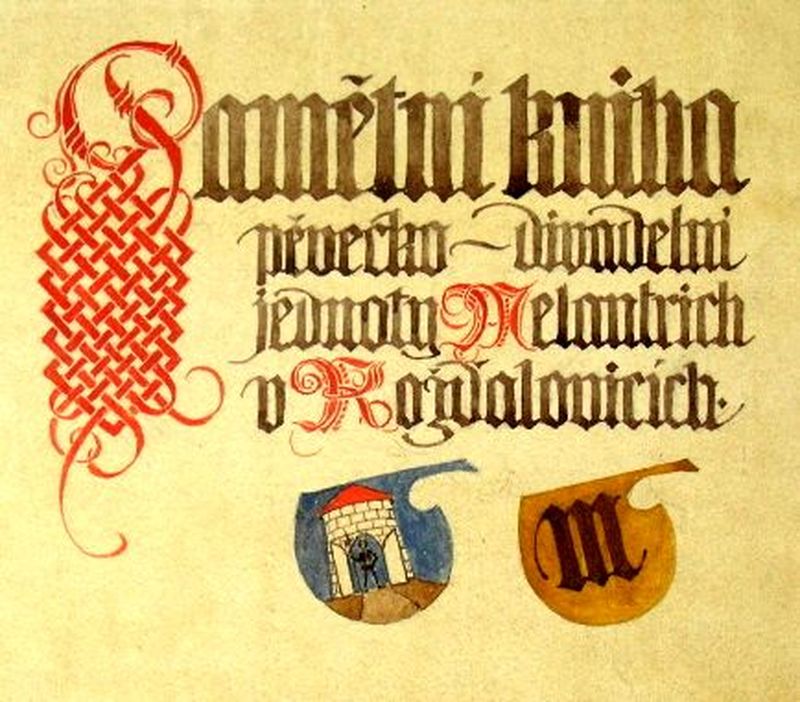 Pamětní kniha
pěvecko-divadelní
jednoty Melantrich
v Rožďalovicích.
m